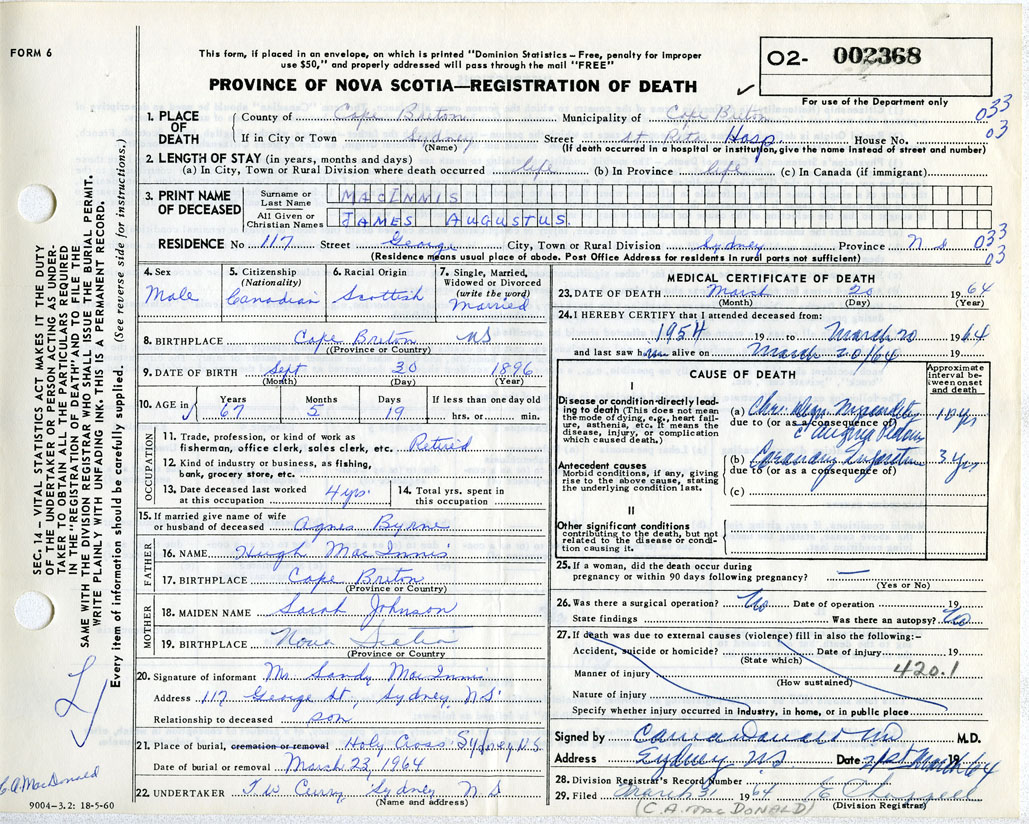 FORM 6
This form, if placed in an envelope, on which is printed "Dominion Statistics – Free, penalty for improper
use $50," and properly addressed will pass through the mail "FREE"
PROVINCE OF NOVA SCOTIA—REGISTRATION OF DEATH ✓
O2- 002368
For use of the Department only
1. PLACE OF DEATH
County of Cape Breton Municipality of Cape Breton 033
If in City or Town Sydney Street St. Rita Hosp. House No. 03
(Name) (If death occurred in a hospital or institution, give the name instead of street and number)
2. LENGTH OF STAY (in years, months and days)
(a) In City, Town or Rural Division where death occurred life (b) In Province life (c) In Canada (if immigrant)
3. PRINT NAME OF DECEASED
Surname or Last Name MACINNIS
All Given or Christian Names JAMES AUGUSTUS.
RESIDENCE No 117 Street George City, Town or Rural Division Sydney Province N S 033
(Residence means usual place of abode. Post Office Address for residents in rural parts not sufficient) 03
4. Sex Male
5. Citizenship (Nationality) Canadian
6. Racial Origin Scottish
7. Single, Married, Widowed or Divorced (write the word) Married
8. BIRTHPLACE Cape Breton NS
(Province or Country)
9. DATE OF BIRTH Sept 30 1896
(Month) (Day) (Year)
10. AGE in Years 67 Months 5 Days 19 If less than one day old hrs. or min.
OCCUPATION
11. Trade, profession, or kind of work as
fisherman, office clerk, sales clerk, etc. Retired
12. Kind of industry or business, as fishing,
bank, grocery store, etc.
13. Date deceased last worked at this occupation 4 yrs.
14. Total yrs. spent in this occupation
15. If married give name of wife
or husband of deceased Agnes Byrne
FATHER
16. NAME Hugh MacInnis
17. BIRTHPLACE Cape Breton
(Province or Country)
MOTHER
18. MAIDEN NAME Sarah Johnson
19. BIRTHPLACE Nova Scotia
(Province or Country)
20. Signature of informant Mr. Sandy MacInnis
Address 117 George St, Sydney, NS
Relationship to deceased son
21. Place of burial, cremation or removal Holy Cross Sydney N.S.
Date of burial or removal March 23, 1964
22. UNDERTAKER T W Curry Sydney N S
(Name and address)
MEDICAL CERTIFICATE OF DEATH
23. DATE OF DEATH March 20 1964
(Month) (Day) (Year)
24. I HEREBY CERTIFY that I attended deceased from:
1954 19 to March 20 1964
and last saw him alive on March 20/64
CAUSE OF DEATH
Approximate interval between onset and death
I
Disease or condition directly leading to death (This does not mean the mode of dying, e.g., heart failure, asthenia, etc. It means the disease, injury, or complication which caused death.)
(a) Chr. Myocarditis 10 yrs
due to (or as a consequence of)
c̄ Angina
Antecedent causes
Morbid conditions, if any, giving rise to the above cause, stating the underlying condition last.
(b) Coronary Infarction 3 yrs
due to (or as a consequence of)
(c)
II
Other significant conditions
contributing to the death, but not related to the disease or condition causing it.
25. If a woman, did the death occur during
pregnancy or within 90 days following pregnancy? —
(Yes or No)
26. Was there a surgical operation? No Date of operation 19
State findings Was there an autopsy? No
27. If death was due to external causes (violence) fill in also the following:-
Accident, suicide or homicide? Date of injury 19
(State which)
Manner of injury 420.1
(How sustained)
Nature of injury
Specify whether injury occurred in industry, in home, or in public place
Signed by C A MacDonald MD M.D.
Address Sydney N.S. Date 21st March 1964
28. Division Registrar's Record Number
29. Filed March 31 1964
(Division Registrar)
(C.A. MacDONALD)
SEC. 14 – VITAL STATISTICS ACT MAKES IT THE DUTY
OF THE UNDERTAKER OR PERSON ACTING AS UNDERTAKER
TO OBTAIN ALL THE PARTICULARS REQUIRED
IN THE "REGISTRATION OF DEATH" AND TO FILE THE
SAME WITH THE DIVISION REGISTRAR WHO SHALL ISSUE THE BURIAL PERMIT.
WRITE PLAINLY WITH UNFADING INK. THIS IS A PERMANENT RECORD.
Every item of information should be carefully supplied. (See reverse side for instructions.)
C.A. MacDonald
9004–3.2: 18-5-60